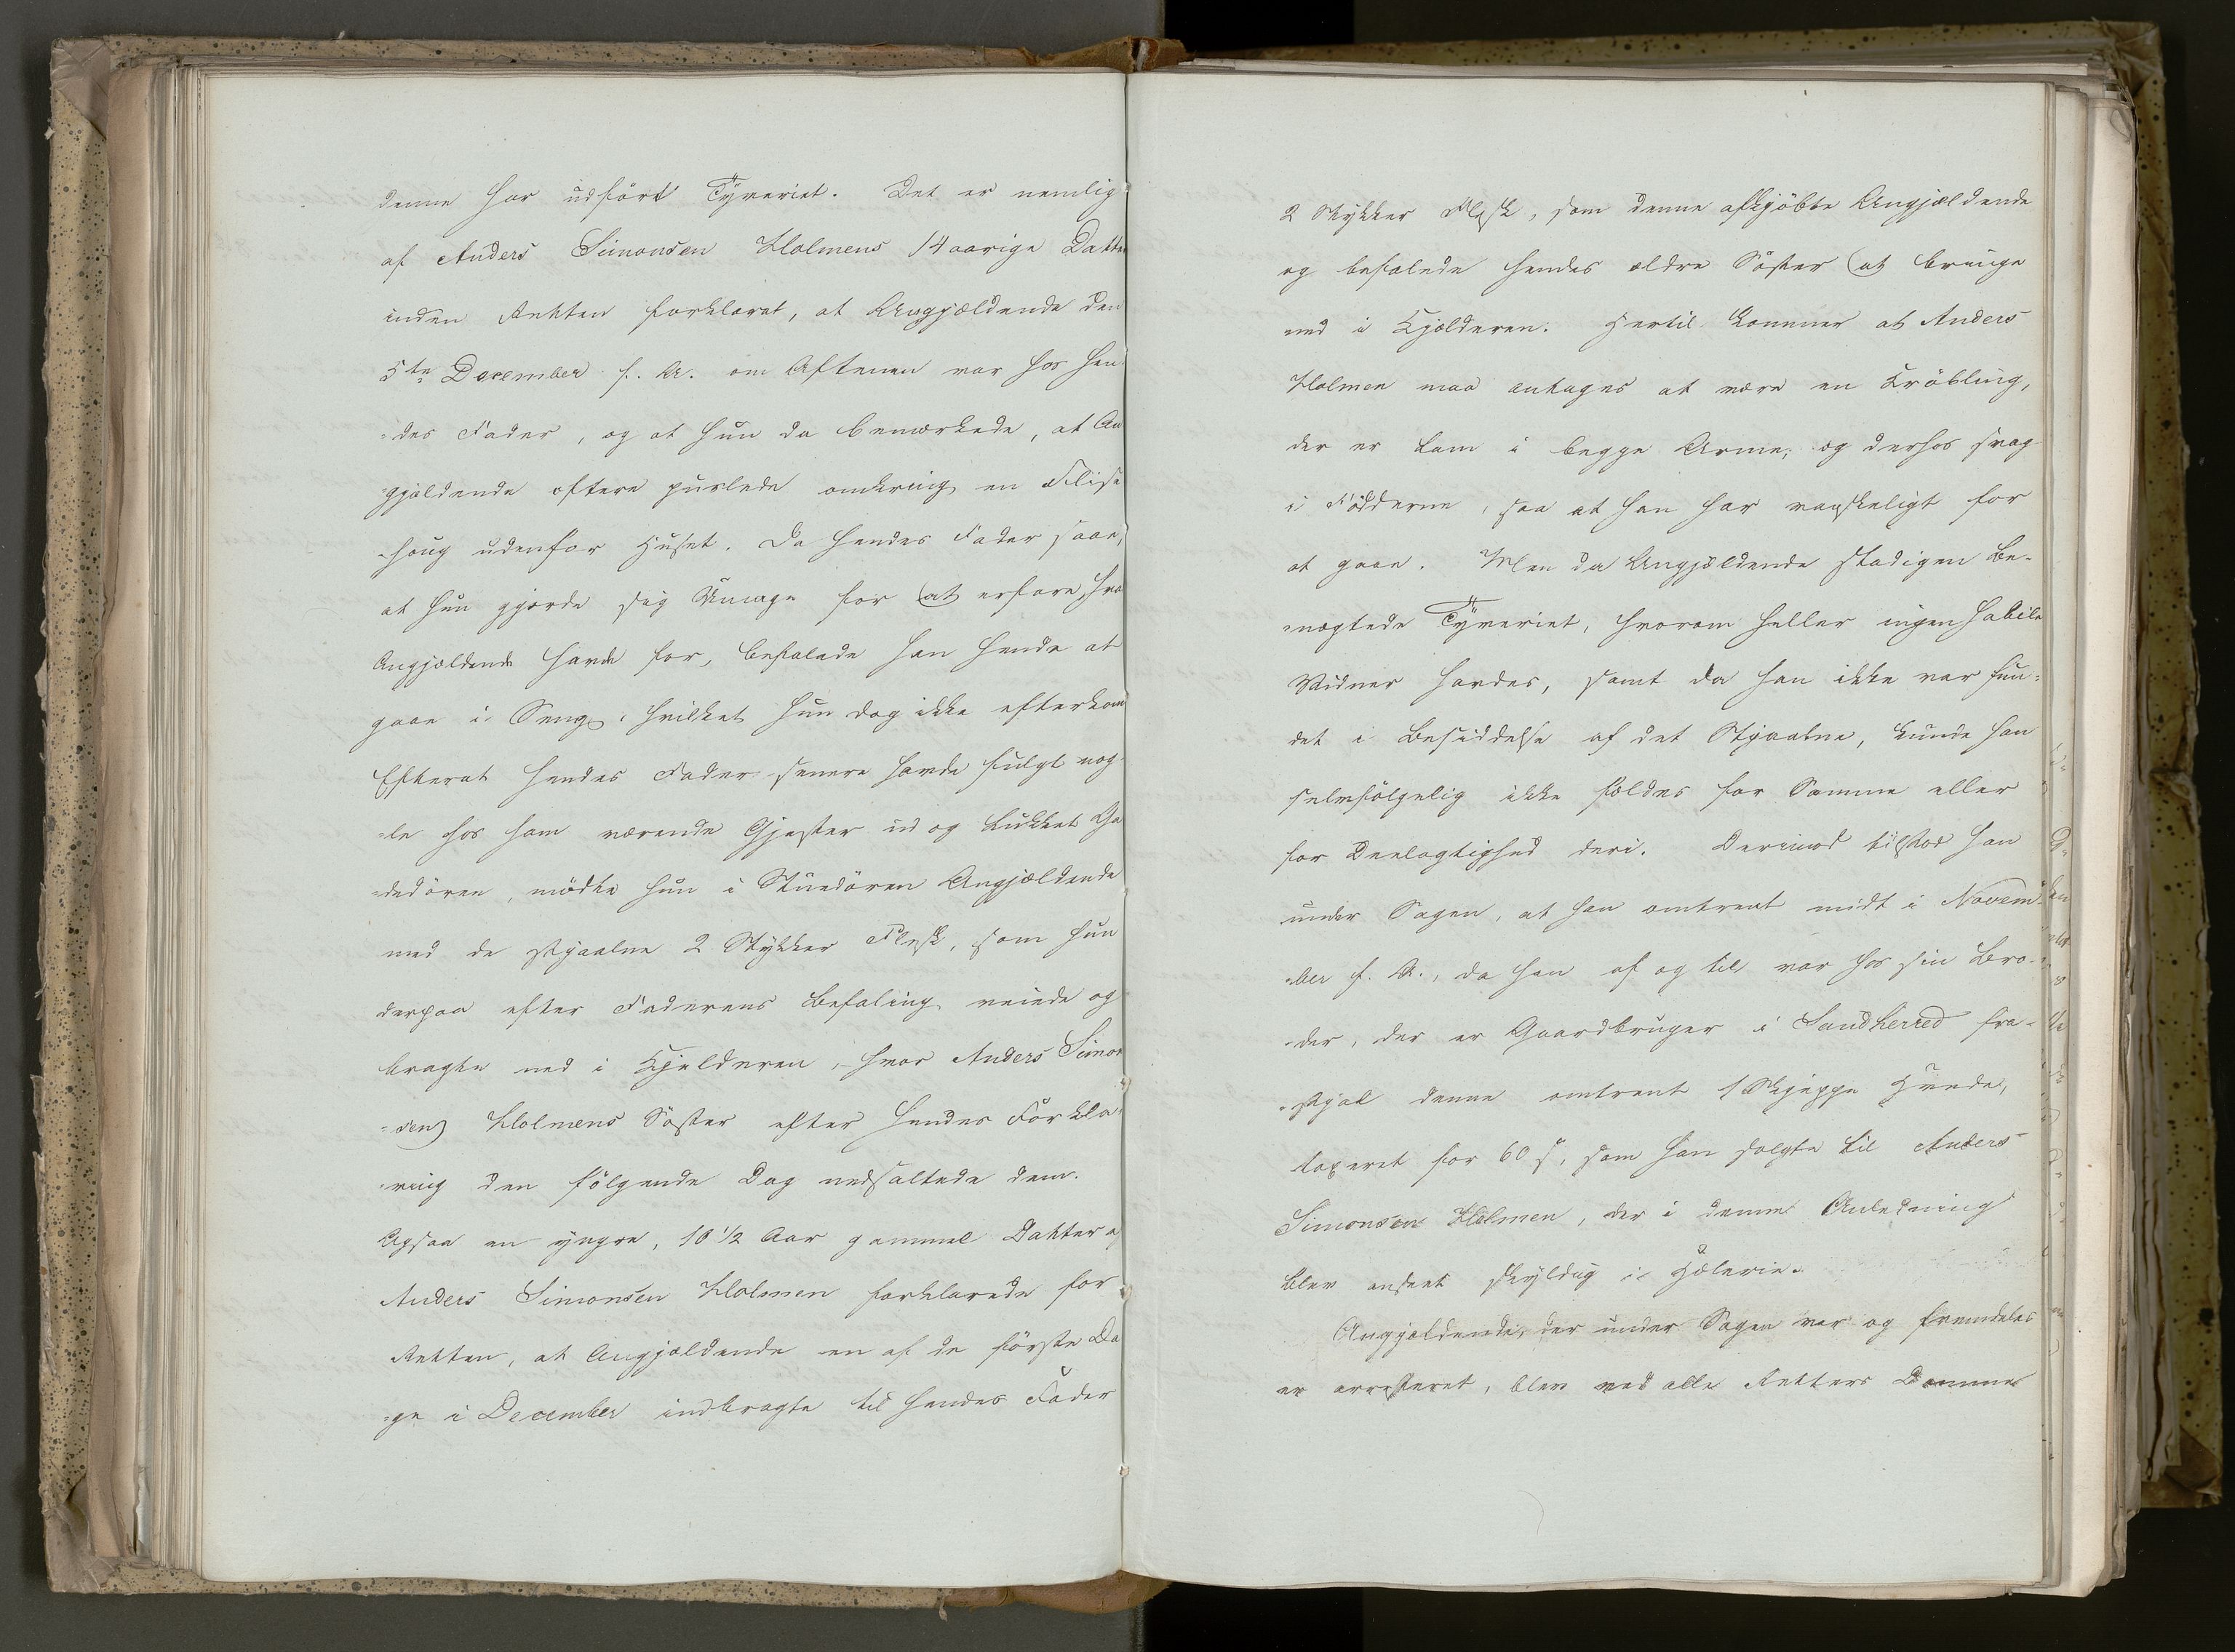 denne har udført Tyveriet. Det er nemlig
af Anders Simonsen Holmens 14 aarige Datter
inden Retten forklaret, at Angjældende den
5te December f. A. om Aftenen var hos hen
=des Fader, og at hun da bemærkede, at An
=gjældende oftere puslede omkring en Flise
=houg udenfor Huset. Da hendes Fader saae,
at hun gjorde sig Umage for at erfare, hva
Angjældende havde for, befalede han hende at
gaae i Seng, hvilket hun dog ikke efterkom
Efterat hendes Fader senere havde fulgt nog
=le hos ham værende Gjester ud og lukket Ga
=dedören, mödte hun i Stuedören Angjældende
med de stjaalne 2 Stykker Flesk, som hun
derpaa efter Faderens Befaling veiede og
bragte ned i Kjelderen, hvor Anders Simon
=sen Holmens Söster efter hendes Forkla
=ring den fölgende Dag nedsaltede dem.
Ogsaa en yngre, 10 1/2 Aar gammel Datter af
Anders Simonsen Holmen forklarede for
Retten, at Angjældende en af de förste Da
=ge i December indbragte til hendes Fader
2 Stykker Flesk, som denne afkjöbte Angjældende
og befalede hendes ældre Söster at bringe
ned i Kjælderen. Hertil kommer at Anders
Holmen maa antages at være en Kröbling,
der er lam i begge Arme, og derhos svag
i Födderne, saa at han har vanskeligt for
at gaae. Men da Angjældende stadigen be-
=nægtede Tyveriet, hvorom heller ingen habile
Vidner havdes, samt da han ikke var fun=
det i Besiddelse af det Stjaalne, kunde han
selvfölgelig ikke fældes for Samme eller
for Deelagtighed deri. Derimod tilstod han
under Sagen, at han omtrent midt i Novem
=ber f. A., da han af og til var hos sin Bro-
=der, der er Gaardbruger i Sandherred fra-
=stjal denne omtrent 1 Skjeppe Hvede,
taxeret for 60 s, som han solgte til Anders
Simonsen Holmen, der i denne Anledning
blev anseet skyldig i Hæleri.
Angjældende, der under Sagen var og fremdeles
er arresteret, blev ved alle Retters Domme